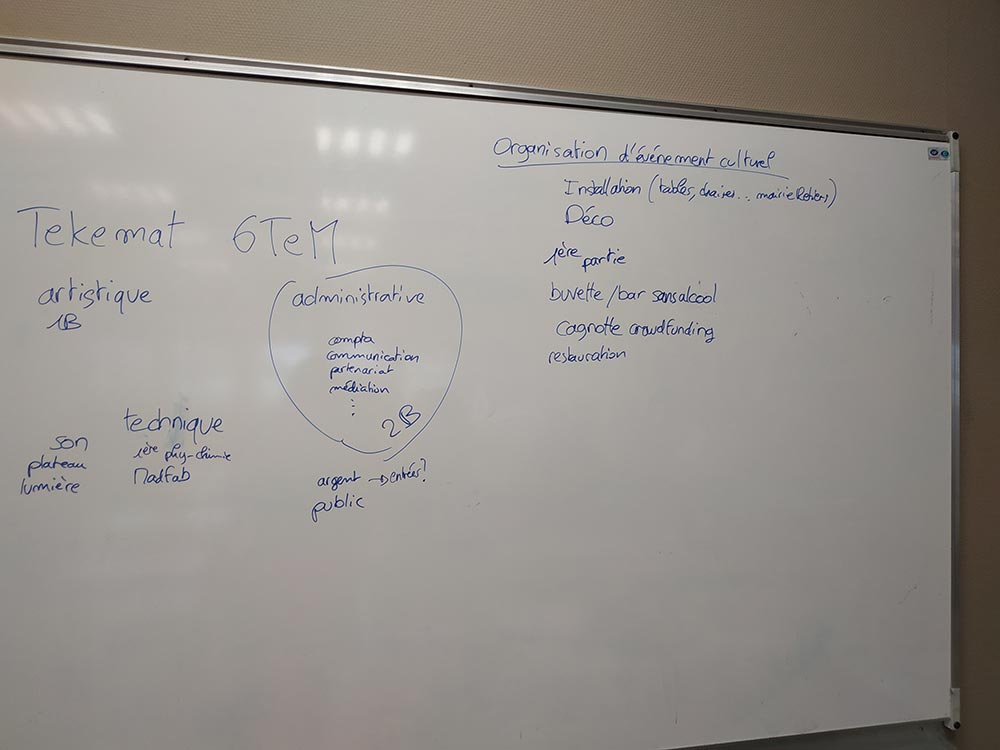 Tekemat 6TeM
artistique
1B
administrative
compta
communication
partenariat
médiation
⋮
2B
argent → entrées?
public
technique
1ère phy-chimie
MadFab
son
plateau
lumière
Organisation d'événement culturel
Installation (tables, chaises... mairie Retiers)
Déco
1ère partie
buvette / bar sans alcool
cagnotte crowdfunding
restauration